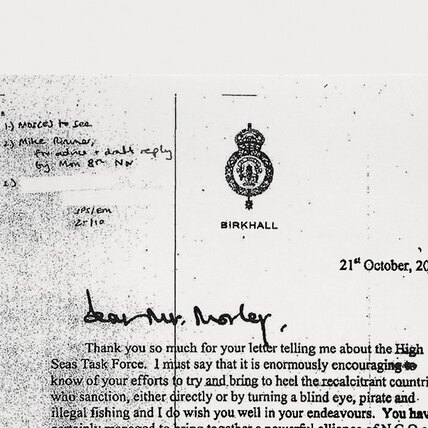 1.) Morees to see
2.) Mike Rimmer,
for advice + draft reply
by Mon 8th Nov
3.)
JPS/Em
25/10
BIRKHALL
21st October, 20
dear Mr. Morley,
Thank you so much for your letter telling me about the High
Seas Task Force. I must say that it is enormously encouraging to
know of your efforts to try and bring to heel the recalcitrant countri
who sanction, either directly or by turning a blind eye, pirate and
illegal fishing and I do wish you well in your endeavours. You have
certainly managed to bring together a powerful alliance of N.G.O